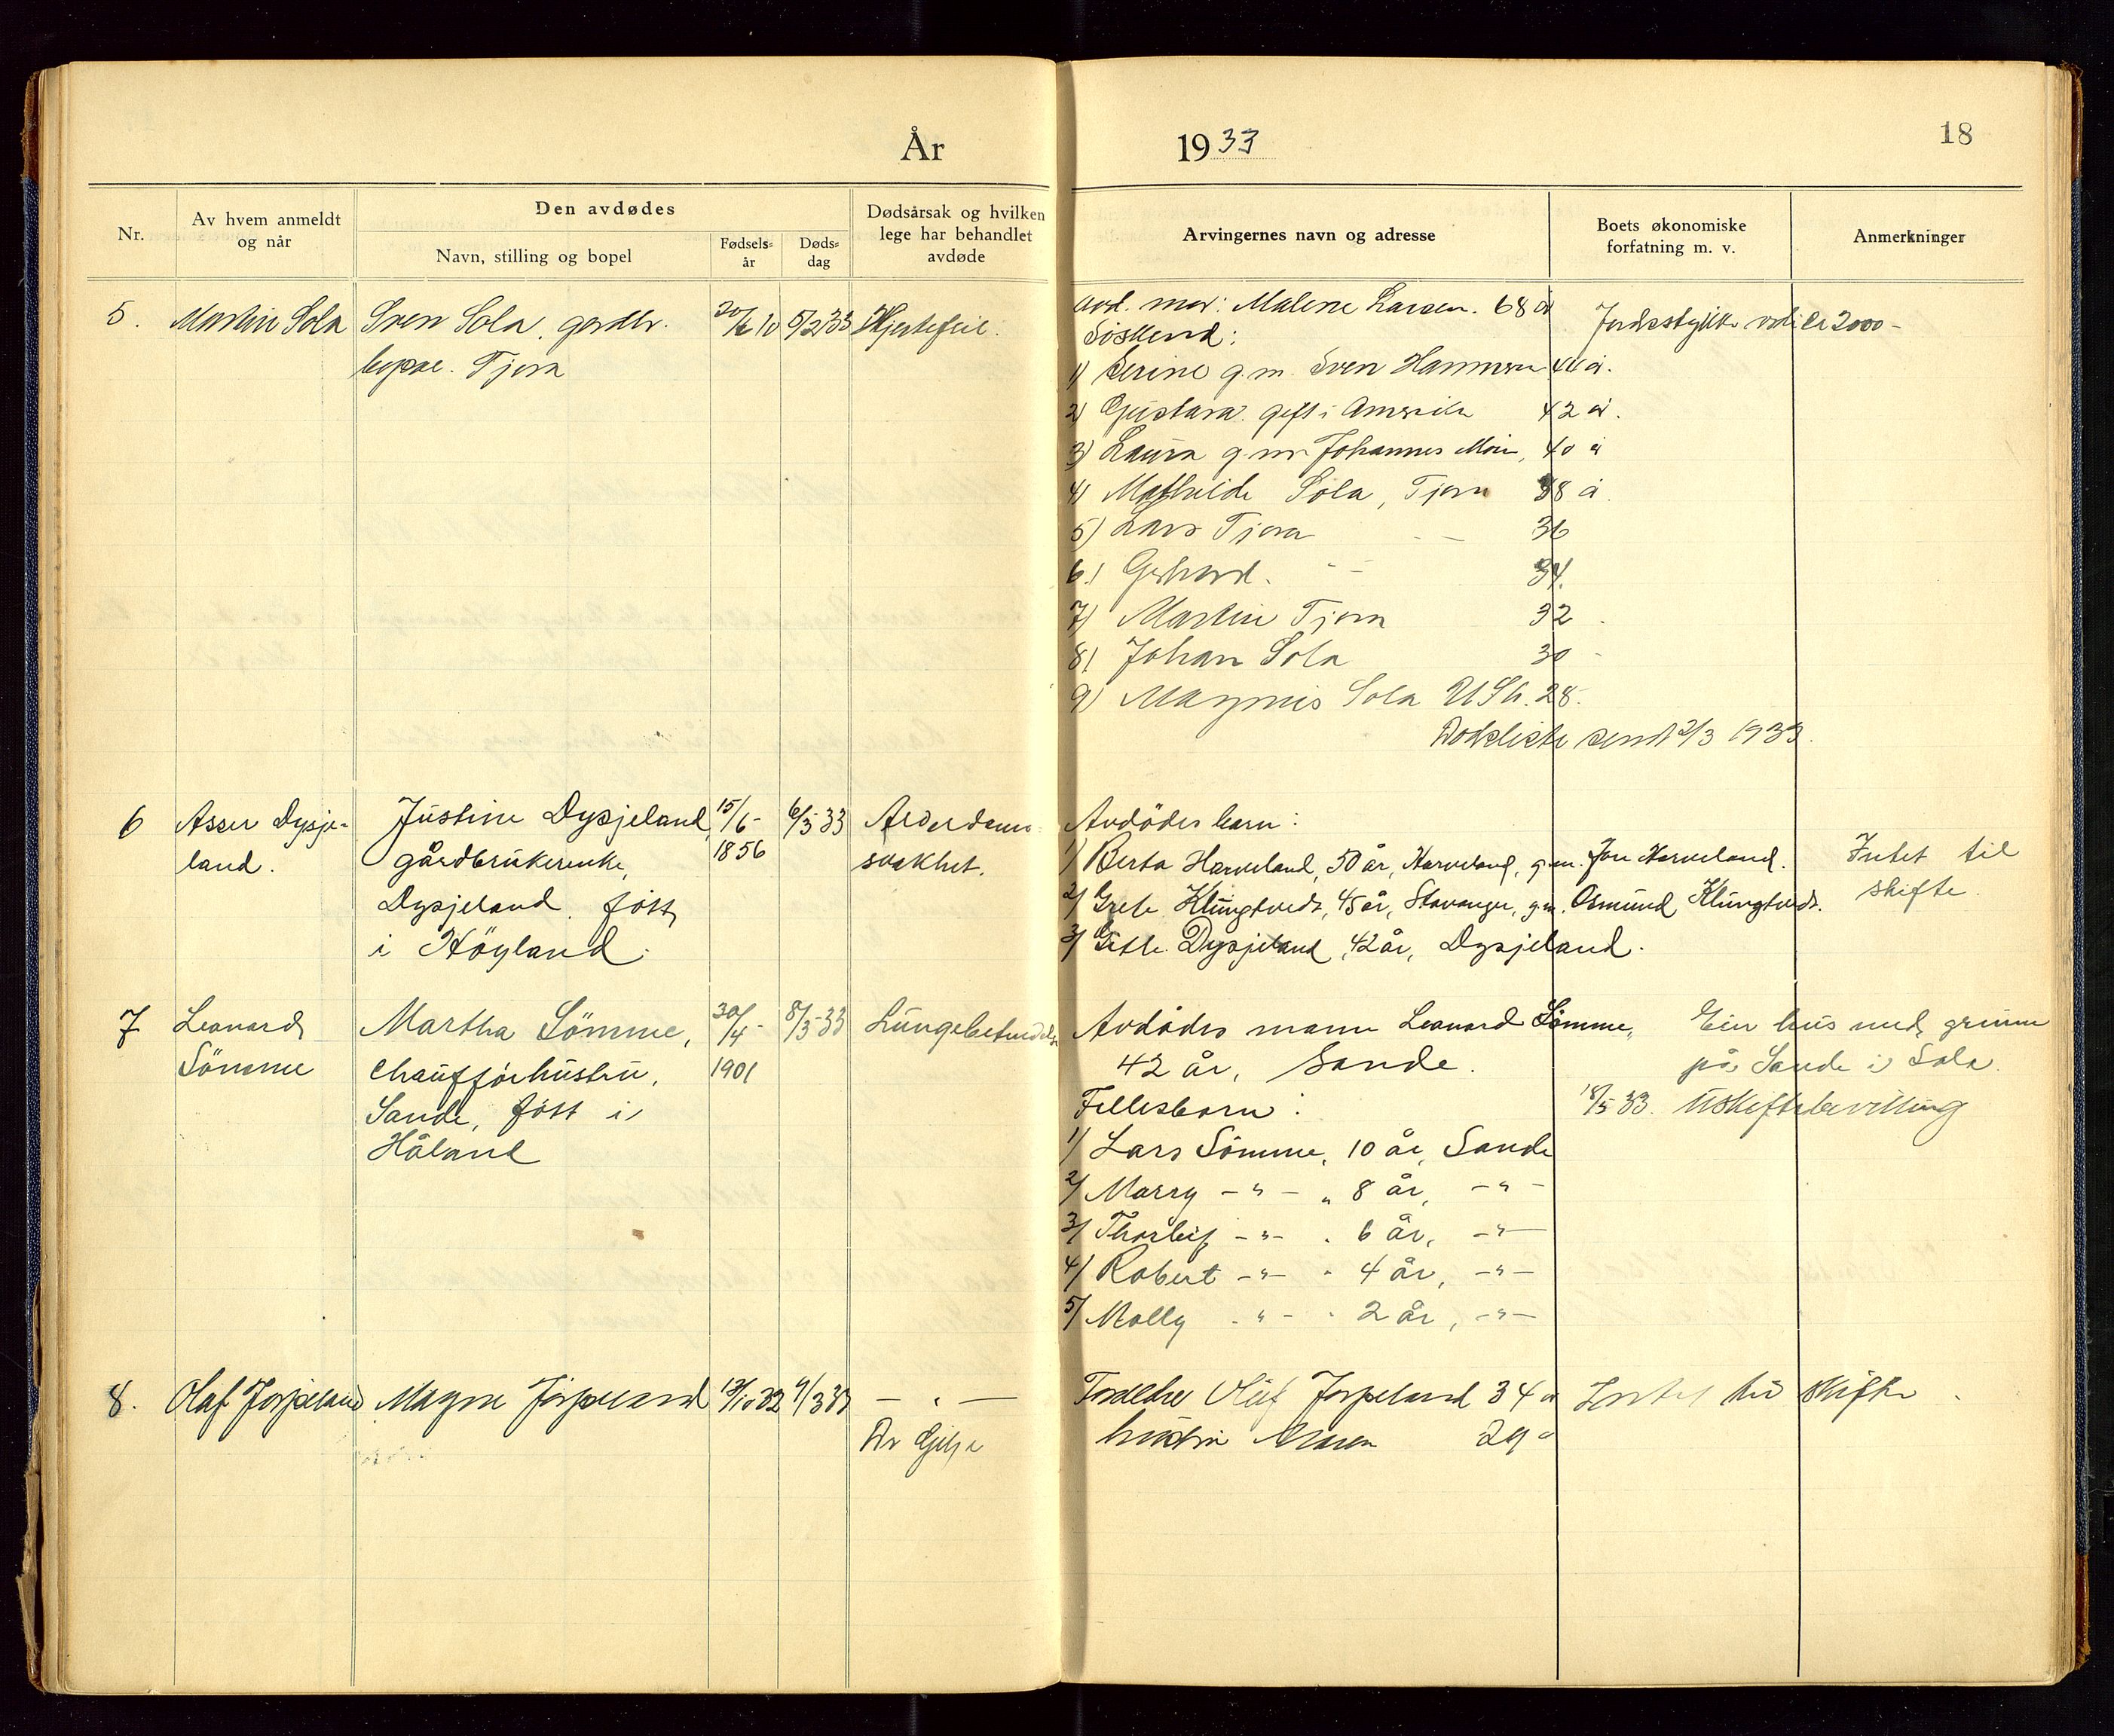 År 1933
18
Nr.
Av hvem anmeldt
og når
Den avdødes
Navn, stilling og bopel
Fødsels-
år
Døds-
dag
Dødsårsak og hvilken
lege har behandlet
avdøde
Arvingernes navn og adresse
Boets økonomiske
forfatning m. v.
Anmerkninger
5.
Martin Sola
Sven Sola, gardbr.
Tjora
5/2 33
Hjertefeil.
avd. mor: Malene Larsen. 68 år
Søskend:
1) Serine g.m. Sven Hammeren 44 år.
2) Gustava gift i Amerika 42 år.
3) Laura g.m. Johannes 40 år
4) Mathilde Sola, Tjora 38 år.
5) Lars Tjora 36
6) Gerhard. - - 34.
7) Martin Tjora 32
8) Johan Sola 30 -
9) Magnus Sola USA. 28.
Dødsliste sendt 2/3 1933.
Jordstykke verdi ca 2000 -
6
Asser Dysje-
land.
Justine Dysjeland,
gårdbrukerenke,
Dysjeland. født
i Höyland.
15/6 -
1856
6/3 33
Alderdoms-
svakhet.
Avdödes barn:
1/ Berta Harveland, 50 år, Harveland, g.m. Jon Harveland.
2/ Grete Klungtvedt, 45 år, Stavanger, g.m. Osmund Klungtvedt.
3/ Gitle Dysjeland, 42 år, Dysjeland.
Intet til
skifte.
7
Leonard
Sömme
Martha Sömme,
Chaufförhustru,
Sande, født i
Håland
30/4 -
1901
8/3 33
Lungebetendelse
Avdødes mann Leonard Sømme,
42 år, Sande.
Fellesbarn:
1/ Lars Sömme, 10 år, Sande
2/ Marry - " - " 8 år, - " -
3/ Thorleif - " - " 6 år, - " -
4/ Robert - " - " 4 år, - " -
5/ Molly - " - " 2 år, - " -
Eier hus med grunn
på Sande i Sola.
18/5 33. Uskiftebevilling
8.
Olaf Jørpeland
Magne Jørpeland
13/10 32
9/3 33
- " -
Dr Gilje
Foreldre Olaf Jørpeland 34 år
hustru Maren 29 "
Intet til skifte.